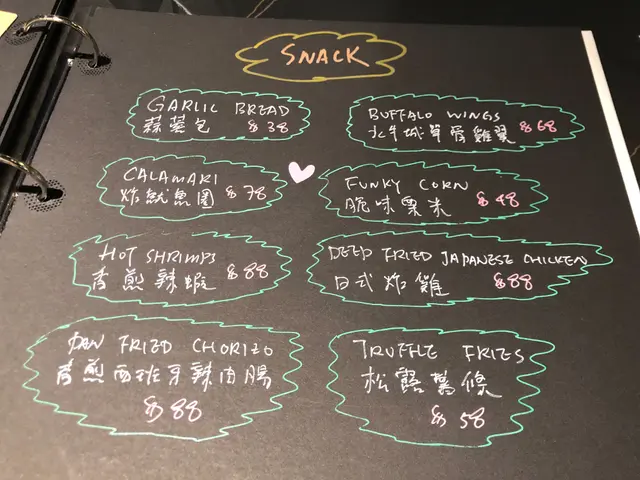 SNACK
GARLIC BREAD
蒜蓉包 $38
BUFFALO WINGS
水牛城單骨雞翼 $68
CALAMARI
炸魷魚圈 $78
FUNKY CORN
脆味粟米 $48
HOT SHRIMPS
香煎辣蝦 $88
DEEP FRIED JAPANESE CHICKEN
日式炸雞 $88
PAN FRIED CHORIZO
香煎西班牙辣肉腸
$88
TRUFFLE FRIES
松露薯條
$58